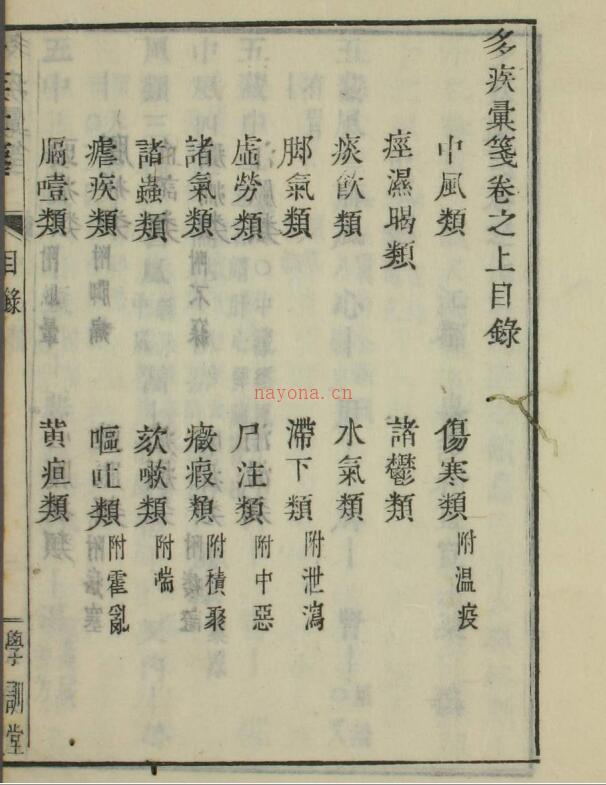 多疾彙箋卷之上目錄
中風類 傷寒類 附温疫
痙濕暍類 諸鬱類
痰飲類 水氣類
脚氣類 滯下類 附泄瀉
虛勞類 尸注類 附中惡
諸氣類 癥瘕類 附積聚
諸蟲類 欬嗽類 附喘
瘧疾類 嘔吐類 附霍亂
膈噎類 黄疸類
目錄 學訓堂
nayona.cn